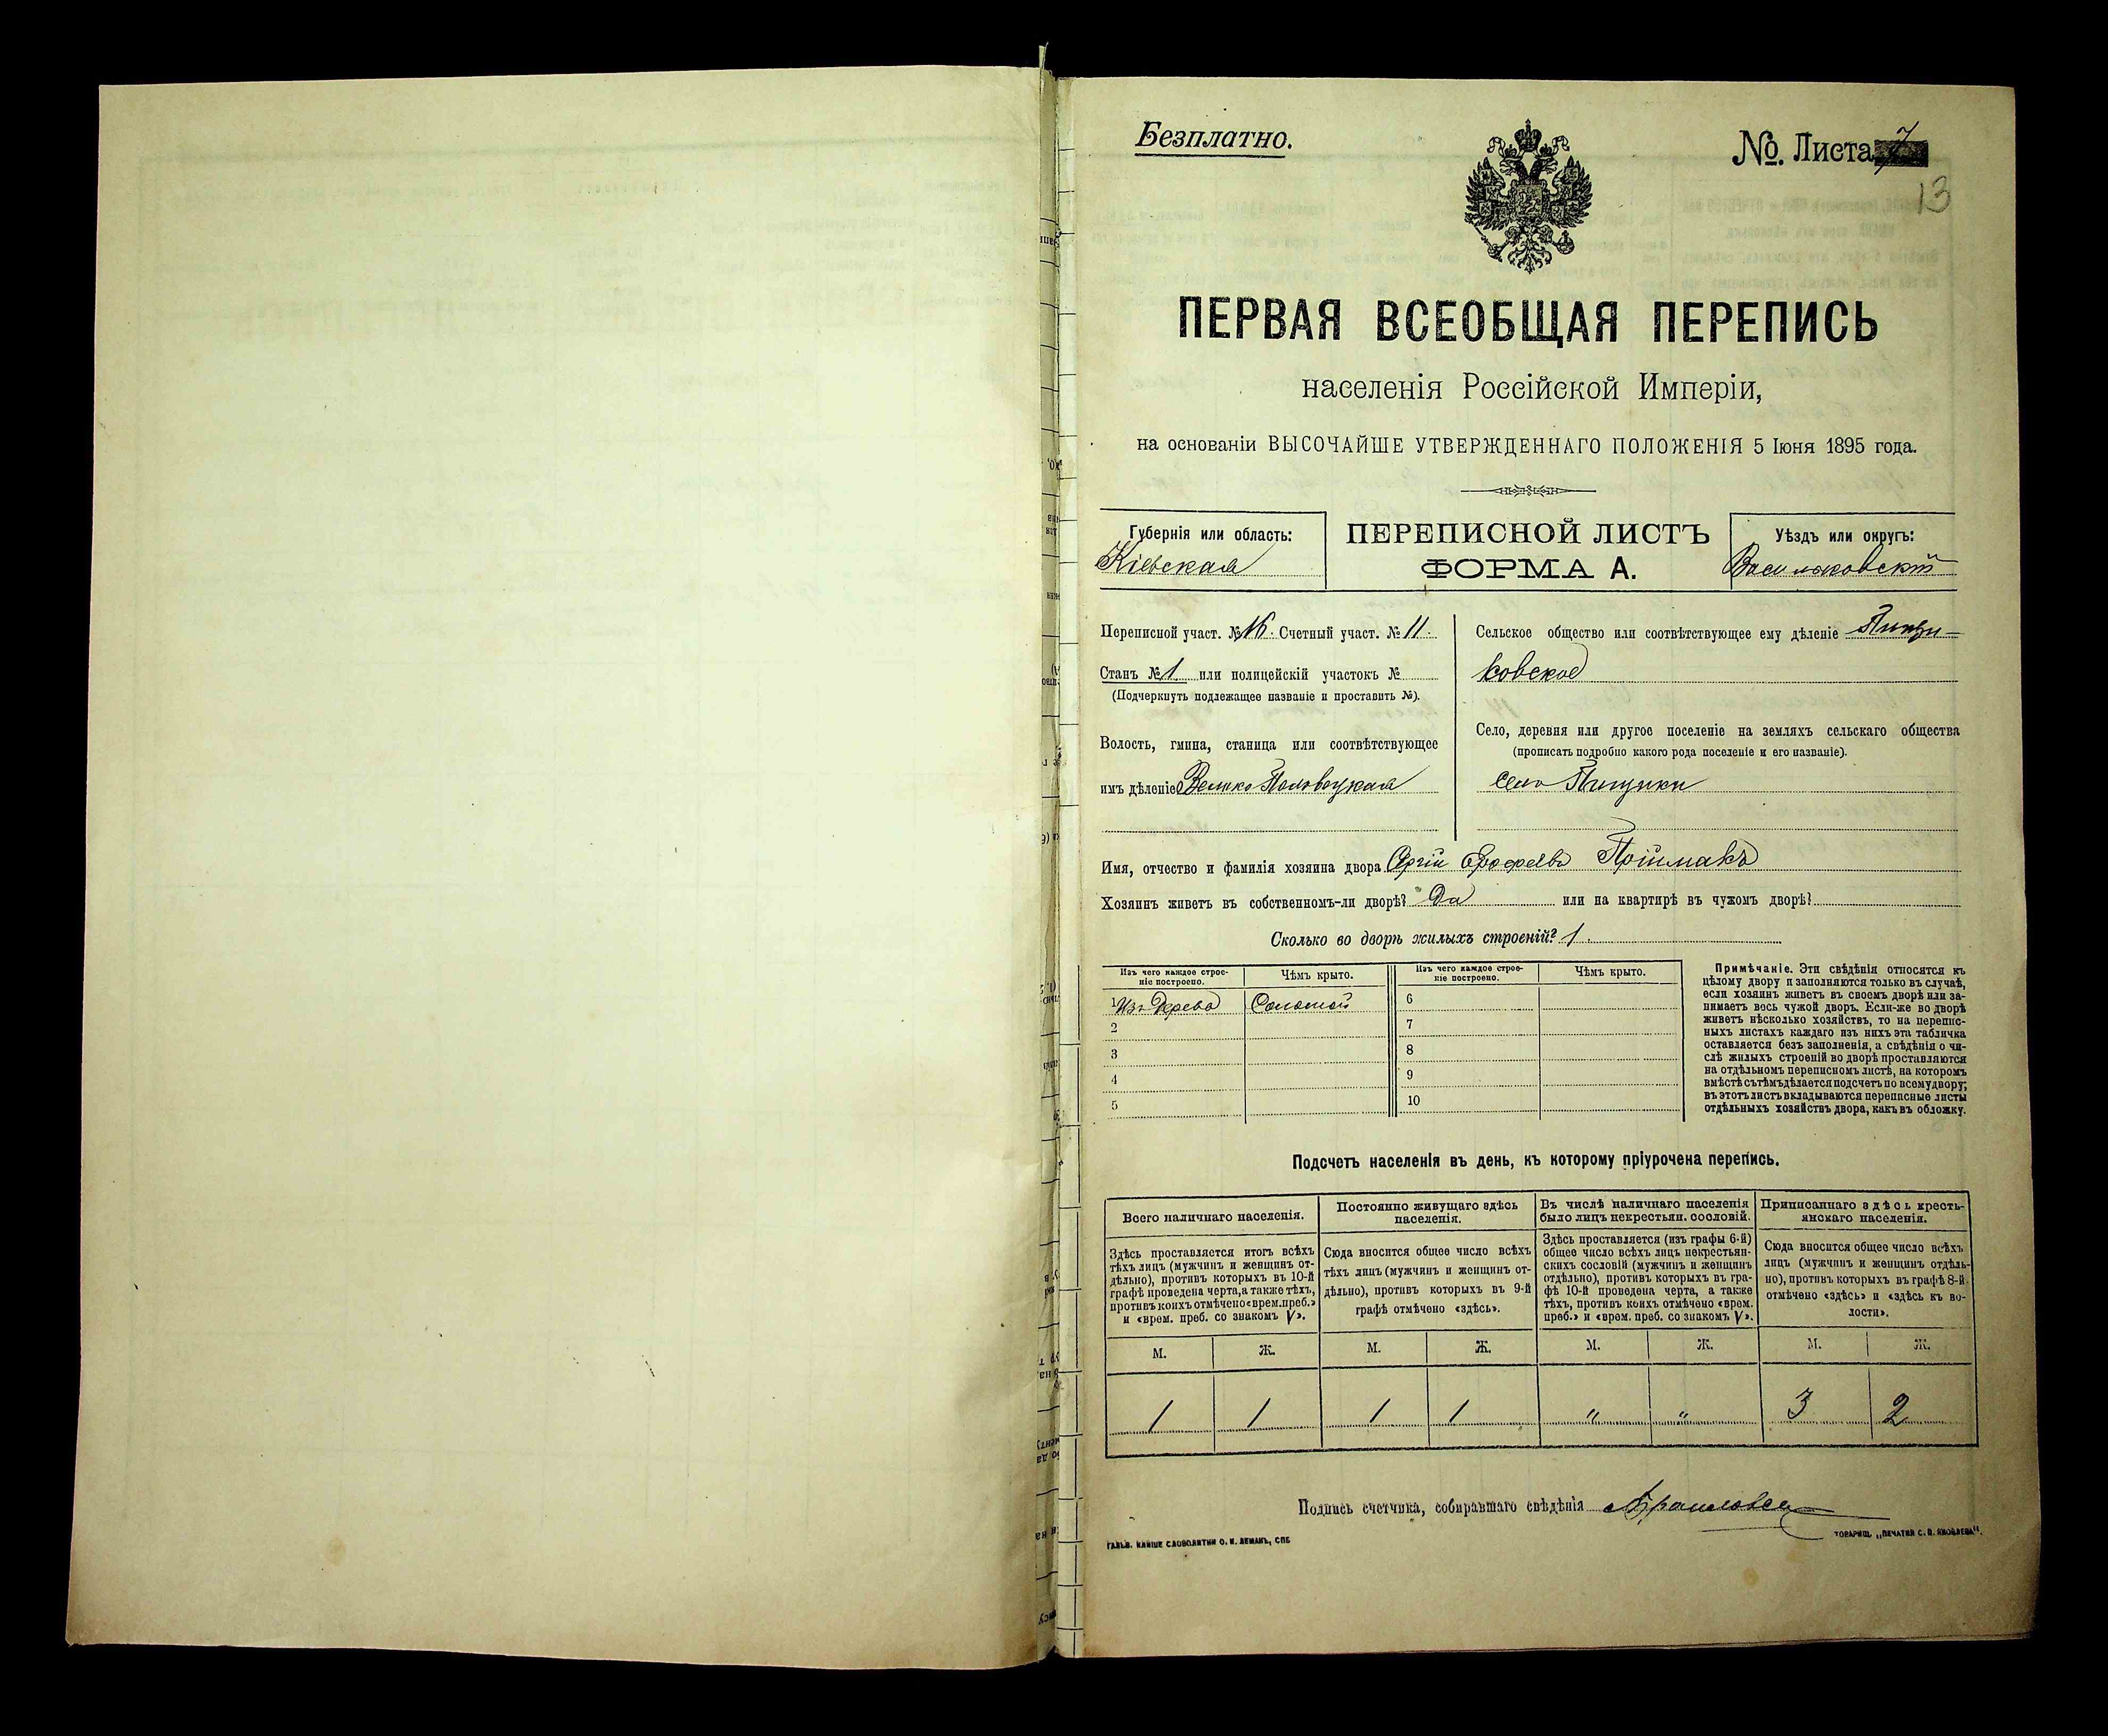 Безплатно.
№. Листа 7
13
ПЕРВАЯ ВСЕОБЩАЯ ПЕРЕПИСЬ
населенія Россійской Имперіи,
на основаніи ВЫСОЧАЙШЕ УТВЕРЖДЕННАГО ПОЛОЖЕНІЯ 5 Іюня 1895 года.
Губернія или область:
Кіевская
ПЕРЕПИСНОЙ ЛИСТЪ
ФОРМА А.
Уѣздъ или округъ:
Васильковскій
Переписной участ. № Счетный участ. № 11.
Станъ № 1 или полицейскій участокъ №
(Подчеркнуть подлежащее названіе и проставить №).
Волость, гмина, станица или соотвѣтствующее
имъ дѣленіе Велико-Половецкая
Сельское общество или соотвѣтствующее ему дѣленіе Пищи-
ковское
Село, деревня или другое поселеніе на земляхъ сельскаго общества
(прописать подробно какого рода поселеніе и его названіе).
село Пищики
Имя, отчество и фамилія хозяина двора Сергій Ерофеевъ Приймакъ
Хозяинъ живетъ въ собственномъ-ли дворѣ? Да или на квартирѣ въ чужомъ дворѣ?
Сколько во дворѣ жилыхъ строеній? 1.
Изъ чего каждое строе-
ніе построено.
Чѣмъ крыто.
Изъ чего каждое строе-
ніе построено.
Чѣмъ крыто.
1 Изъ Дерева Соломой 6
2 7
3 8
4 9
5 10
Примѣчаніе. Эти свѣдѣнія относятся къ
цѣлому двору и заполняются только въ случаѣ,
если хозяинъ живетъ въ своемъ дворѣ или за-
нимаетъ весь чужой дворъ. Если-же во дворѣ
живетъ нѣсколько хозяйствъ, то на перепис-
ныхъ листахъ каждаго изъ нихъ эта табличка
оставляется безъ заполненія, а свѣдѣнія о чи-
слѣ жилыхъ строеній во дворѣ проставляются
на отдѣльномъ переписномъ листѣ, на которомъ
вмѣстѣ съ тѣмъ дѣлается подсчетъ по всему двору;
въ этотъ листъ вкладываются переписные листы
отдѣльныхъ хозяйствъ двора, какъ въ обложку.
Подсчетъ населенія въ день, къ которому пріурочена перепись.
Всего наличнаго населенія.
Постоянно живущаго здѣсь
населенія.
Въ числѣ наличнаго населенія
было лицъ некрестьян. сословій.
Приписаннаго здѣсь кресть-
янскаго населенія.
Здѣсь проставляется итогъ всѣхъ
тѣхъ лицъ (мужчинъ и женщинъ от-
дѣльно), противъ которыхъ въ 10-й
графѣ проведена черта, а также тѣхъ,
противъ коихъ отмѣчено «врем. преб.»
и «врем. преб. со знакомъ V».
Сюда вносится общее число всѣхъ
тѣхъ лицъ (мужчинъ и женщинъ от-
дѣльно), противъ которыхъ въ 9-й
графѣ отмѣчено «здѣсь».
Здѣсь проставляется (изъ графы 6-й)
общее число всѣхъ лицъ некрестьян-
скихъ сословій (мужчинъ и женщинъ
отдѣльно), противъ которыхъ въ гра-
фѣ 10-й проведена черта, а также
тѣхъ, противъ коихъ отмѣчено «врем.
преб.» и «врем. преб. со знакомъ V».
Сюда вносится общее число всѣхъ
лицъ (мужчинъ и женщинъ отдѣль-
но), противъ которыхъ въ графѣ 8-й
отмѣчено «здѣсь» и «здѣсь къ во-
лости».
М. Ж. М. Ж. М. Ж. М. Ж.
1 1 1 1 " " 3 2
Подпись счетчика, собиравшаго свѣдѣнія
ГАЛЬВ. КЛИШЕ СЛОВОЛИТНИ О. И. ЛЕМАНЪ, СПБ
ТОВАРИЩ. „ПЕЧАТНЯ С. П. ЯКОВЛЕВА".